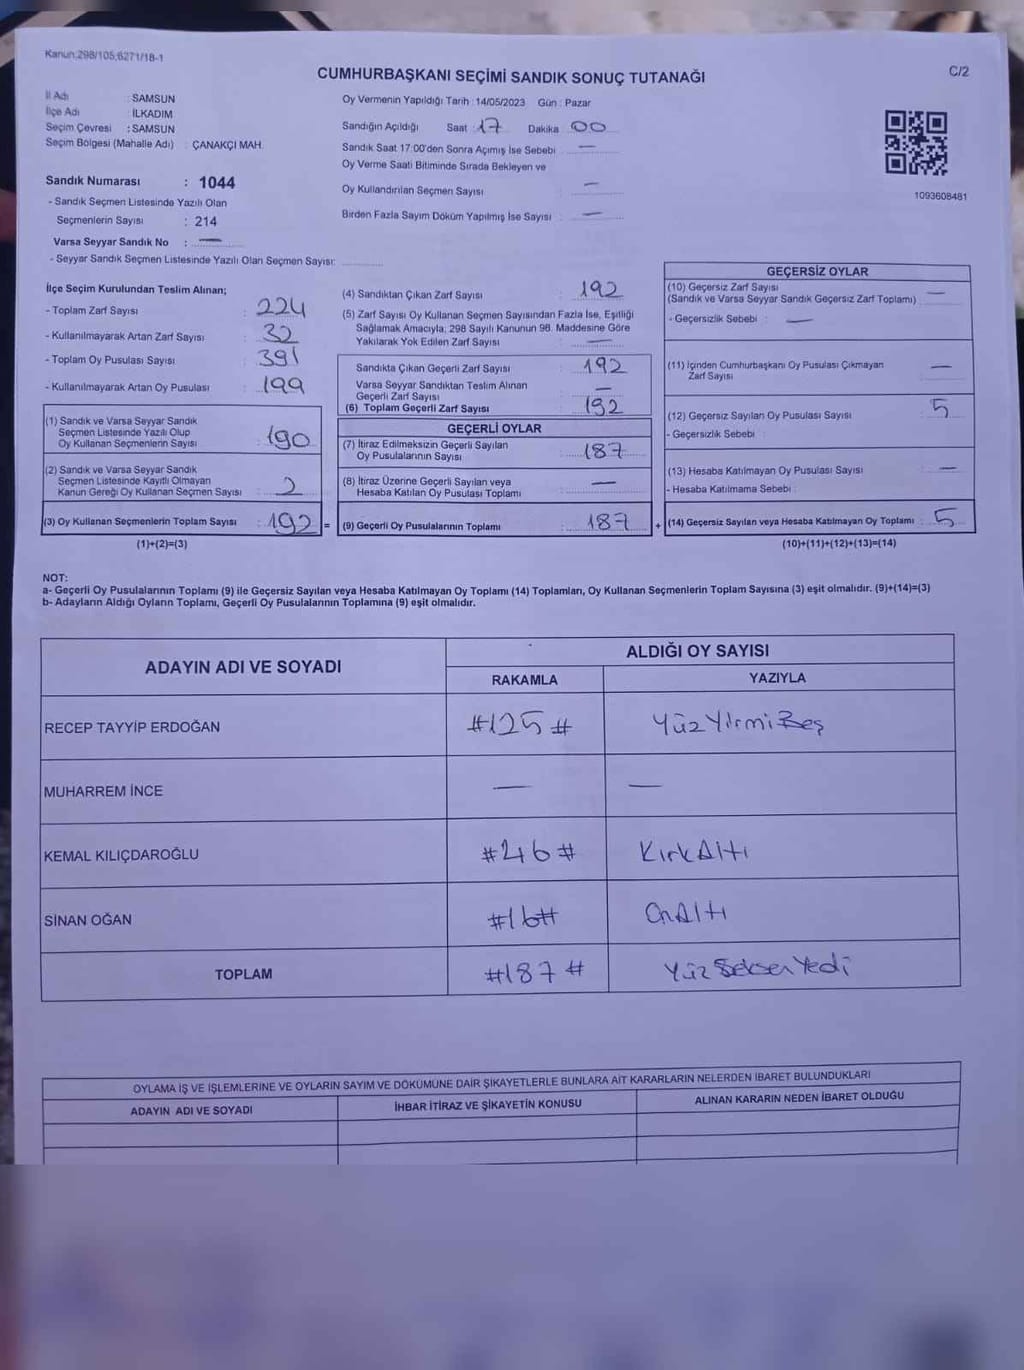 Kanun:298/105;6271/18-1
C/2
CUMHURBAŞKANI SEÇİMİ SANDIK SONUÇ TUTANAĞI
İl Adı : SAMSUN
İlçe Adı : İLKADIM
Seçim Çevresi : SAMSUN
Seçim Bölgesi (Mahalle Adı) : ÇANAKÇI MAH.
Sandık Numarası : 1044
- Sandık Seçmen Listesinde Yazılı Olan
Seçmenlerin Sayısı : 214
Varsa Seyyar Sandık No : —
- Seyyar Sandık Seçmen Listesinde Yazılı Olan Seçmen Sayısı:
Oy Vermenin Yapıldığı Tarih : 14/05/2023 Gün : Pazar
Sandığın Açıldığı Saat : 17 Dakika 00
Sandık Saat 17:00'den Sonra Açımış İse Sebebi : —
Oy Verme Saati Bitiminde Sırada Bekleyen ve
Oy Kullandırılan Seçmen Sayısı : —
Birden Fazla Sayım Döküm Yapılmış İse Sayısı : —
1093608481
İlçe Seçim Kurulundan Teslim Alınan;
- Toplam Zarf Sayısı : 224
- Kullanılmayarak Artan Zarf Sayısı : 32
- Toplam Oy Pusulası Sayısı : 391
- Kullanılmayarak Artan Oy Pusulası : 199
(1) Sandık ve Varsa Seyyar Sandık
Seçmen Listesinde Yazılı Olup
Oy Kullanan Seçmenlerin Sayısı : 190
(2) Sandık ve Varsa Seyyar Sandık
Seçmen Listesinde Kayıtlı Olmayan
Kanun Gereği Oy Kullanan Seçmen Sayısı : 2
(3) Oy Kullanan Seçmenlerin Toplam Sayısı : 192 =
(1)+(2)=(3)
(4) Sandıktan Çıkan Zarf Sayısı : 192
(5) Zarf Sayısı Oy Kullanan Seçmen Sayısından Fazla İse, Eşitliği
Sağlamak Amacıyla; 298 Sayılı Kanunun 98. Maddesine Göre
Yakılarak Yok Edilen Zarf Sayısı : —
Sandıkta Çıkan Geçerli Zarf Sayısı : 192
Varsa Seyyar Sandıktan Teslim Alınan
Geçerli Zarf Sayısı : —
(6) Toplam Geçerli Zarf Sayısı : 192
GEÇERLİ OYLAR
(7) İtiraz Edilmeksizin Geçerli Sayılan
Oy Pusulalarının Sayısı : 187
(8) İtiraz Üzerine Geçerli Sayılan veya
Hesaba Katılan Oy Pusulası Toplamı : —
(9) Geçerli Oy Pusulalarının Toplamı : 187 +
GEÇERSİZ OYLAR
(10) Geçersiz Zarf Sayısı : —
(Sandık ve Varsa Seyyar Sandık Geçersiz Zarf Toplamı)
- Geçersizlik Sebebi : —
(11) İçinden Cumhurbaşkanı Oy Pusulası Çıkmayan
Zarf Sayısı : —
(12) Geçersiz Sayılan Oy Pusulası Sayısı : 5
- Geçersizlik Sebebi :
(13) Hesaba Katılmayan Oy Pusulası Sayısı : —
- Hesaba Katılmama Sebebi :
(14) Geçersiz Sayılan veya Hesaba Katılmayan Oy Toplamı : 5
(10)+(11)+(12)+(13)=(14)
NOT:
a- Geçerli Oy Pusulalarının Toplamı (9) ile Geçersiz Sayılan veya Hesaba Katılmayan Oy Toplamı (14) Toplamları, Oy Kullanan Seçmenlerin Toplam Sayısına (3) eşit olmalıdır. (9)+(14)=(3)
b- Adayların Aldığı Oyların Toplamı, Geçerli Oy Pusulalarının Toplamına (9) eşit olmalıdır.
ADAYIN ADI VE SOYADI
ALDIĞI OY SAYISI
RAKAMLA YAZIYLA
RECEP TAYYİP ERDOĞAN #125# Yüz Yirmi Beş
MUHARREM İNCE — —
KEMAL KILIÇDAROĞLU #46# Kırk Altı
SİNAN OĞAN #16# On Altı
TOPLAM #187# Yüz Seksen Yedi
OYLAMA İŞ VE İŞLEMLERİNE VE OYLARIN SAYIM VE DÖKÜMÜNE DAİR ŞİKAYETLERLE BUNLARA AİT KARARLARIN NELERDEN İBARET BULUNDUKLARI
ADAYIN ADI VE SOYADI İHBAR İTİRAZ VE ŞİKAYETİN KONUSU ALINAN KARARIN NEDEN İBARET OLDUĞU